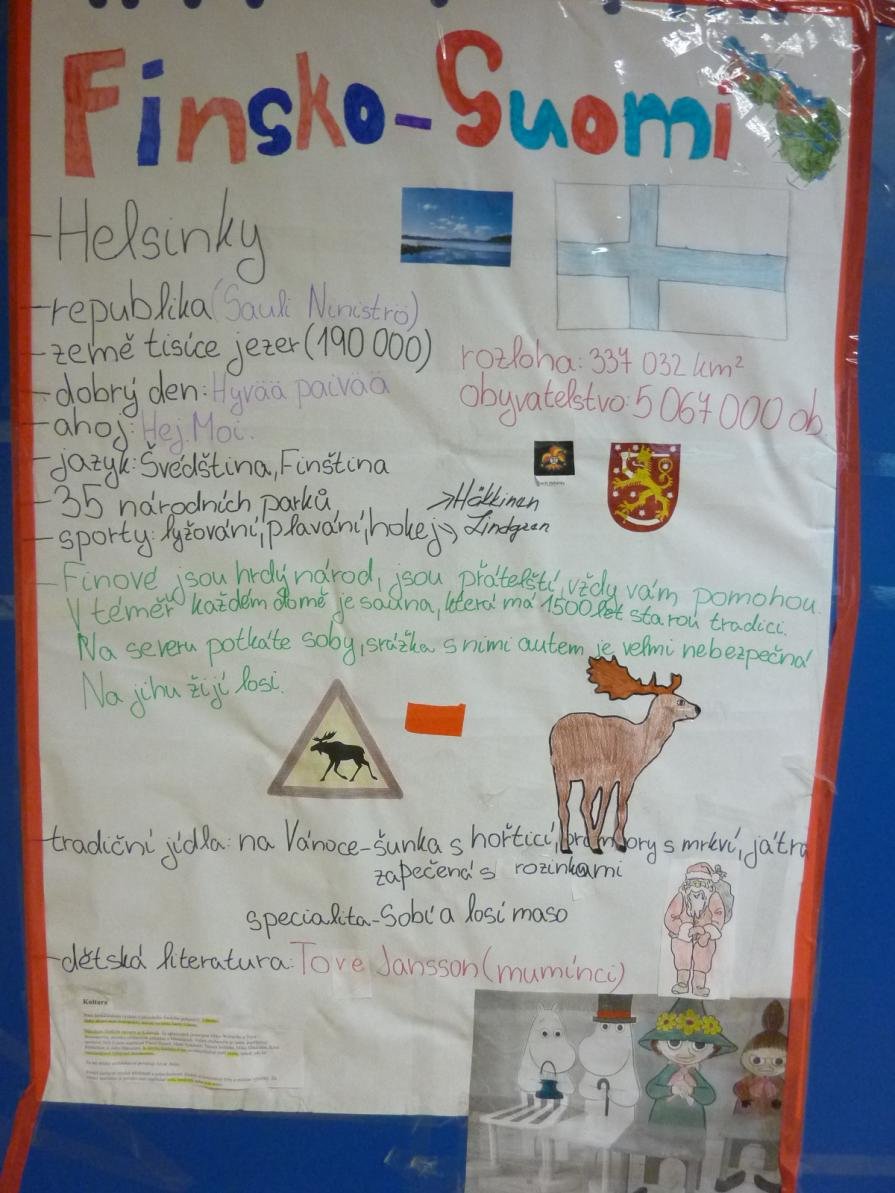 Finsko-Suomi
-Helsinky
-republika (Sauli Niniströ)
-země tisíce jezer (190 000)
rozloha: 337 032 km²
-dobrý den: Hyvää paivää
obyvatelstvo: 5 067 000 ob.
-ahoj: Hej. Moi.
-jazyk: Švédština, Finština
-35 národních parků
-sporty: lyžování, plavání, hokej
→Häkkinen
Lindgren
-Finové jsou hrdý národ, jsou přátelští, vždy vám pomohou.
V téměř každém domě je sauna, která má 1500 let starou tradici.
Na severu potkáte soby, srážka s nimi autem je velmi nebezpečná
Na jihu žijí losi.
-tradiční jídla: na Vánoce-šunka s hořticí, brambory s mrkví, játra
zapečená s rozinkami
specialita-Sobí a losí maso
-dětská literatura: Tove Jansson (mumínci)
Kultura